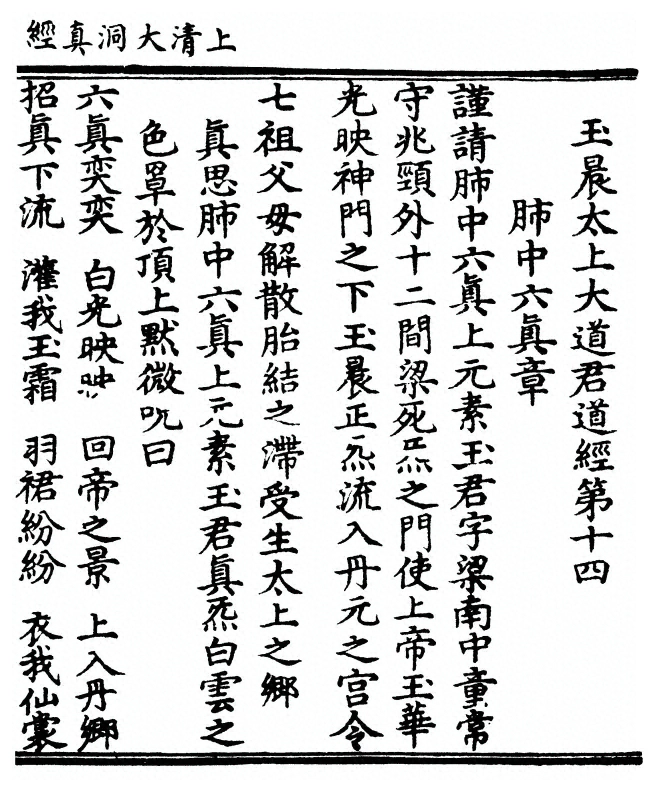 上清大洞真經
玉晨太上大道君道經第十四
肺中六眞章
謹請肺中六眞上元素玉君字梁南中童常
守兆頸外十二間梁死炁之門使上帝玉華
光映神門之下玉晨正炁流入丹元之宮令
七祖父母解散胎結之滯受生太上之鄉
眞思肺中六眞上元素玉君眞炁白雲之
色罩於頂上默微呪曰
六眞奕奕 白光映映 回帝之景 上入丹鄉
招眞下流 灌我玉霜 羽裙紛紛 衣我仙裳